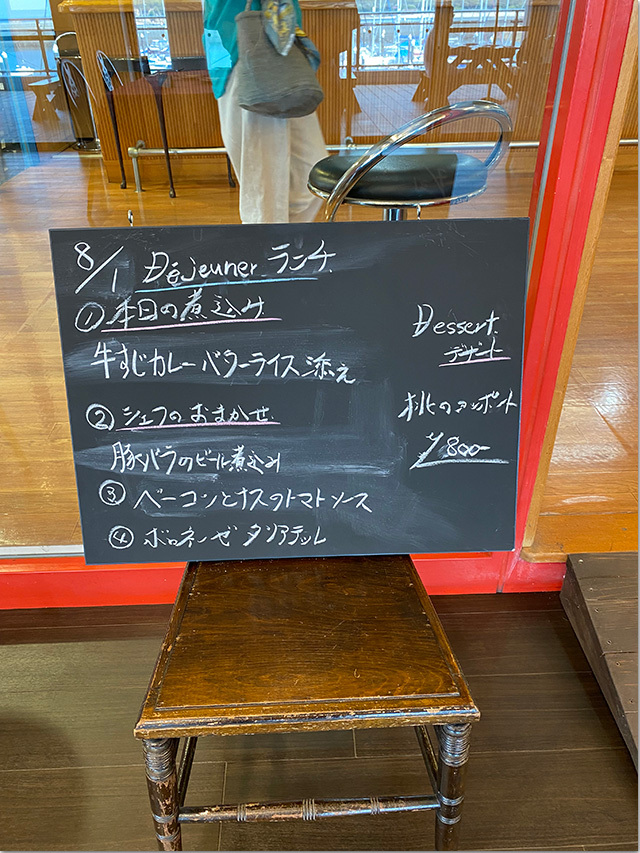 8/1 Déjeuner ランチ
①本日の煮込み
牛すじカレーバターライス添え
②シェフのおまかせ
豚バラのビール煮込み
③ベーコンとナスのトマトソース
④ボロネーゼ タリアテッレ
Dessert
デザート
桃のコンポート
¥800-